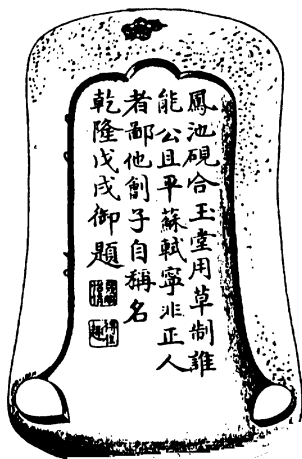 鳳池硯合玉堂用草制誰
能公且平蘇軾寧非正人
者鄙他劊子自稱名
乾隆戊戌御題